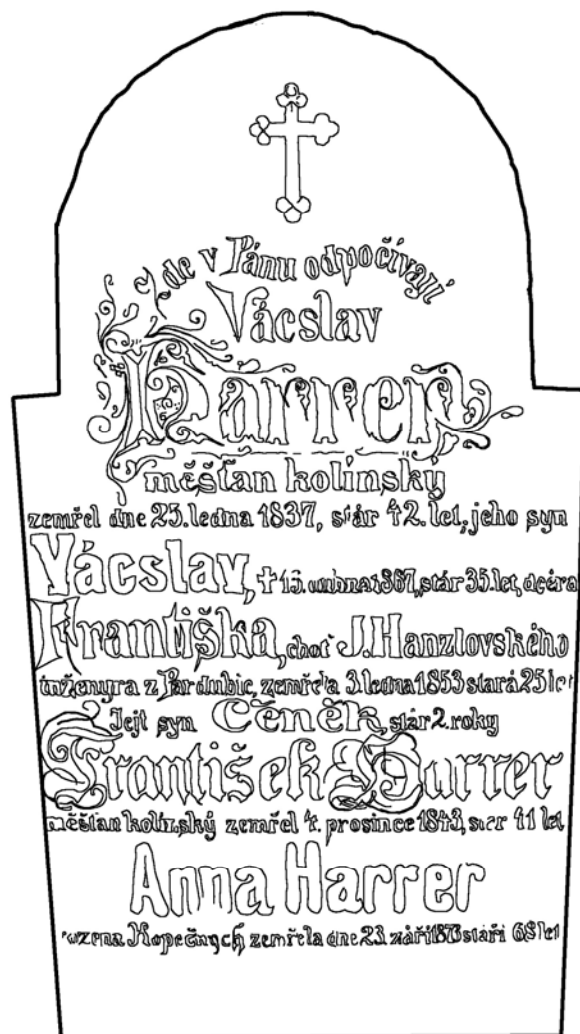 de v Pánu odpočívají
Vácslav
Harrer
měšťan kolínský
zemřel dne 25. ledna 1837, stár 42. let, jeho syn
Vácslav, † 15. dubna 1867, stár 35. let, dcéra
Františka, choť J. Hanzlovského
inženyra z Pardubic, zemřela 3. ledna 1853 stará 25 let
Její syn Čeněk, stár 2. roky
František Harrer
měšťan kolínský zemřel 4. prosince 1843, stár 41 let
Anna Harrer
Kopečných zemřela dne 23. září 1873 stáří 68 let